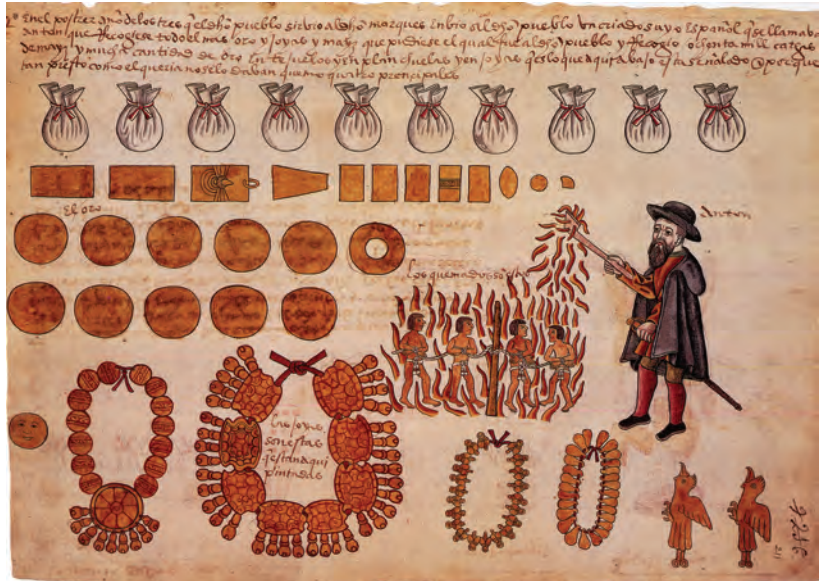 En el postrer año de los tres q̃ el dho pueblo sirvio al dho marques enbio al dho pueblo un criado suyo español q̃ se llamava
anton que Recogiese todo el mas oro y joyas y mayz que pudiese el qual fue al dho pueblo y Recogio ochenta mill cargas
de mayz y mucha cantidad de oro en tejuelos y en planchuelas y en joyas q̃ es lo que aqui abajo esta señalado y porque
tan presto como el queria no se lo davan quemo quatro principales
Anton
El oro
los quemados son estos
las joyas
son estas
q̃ estan aqui
pintadas